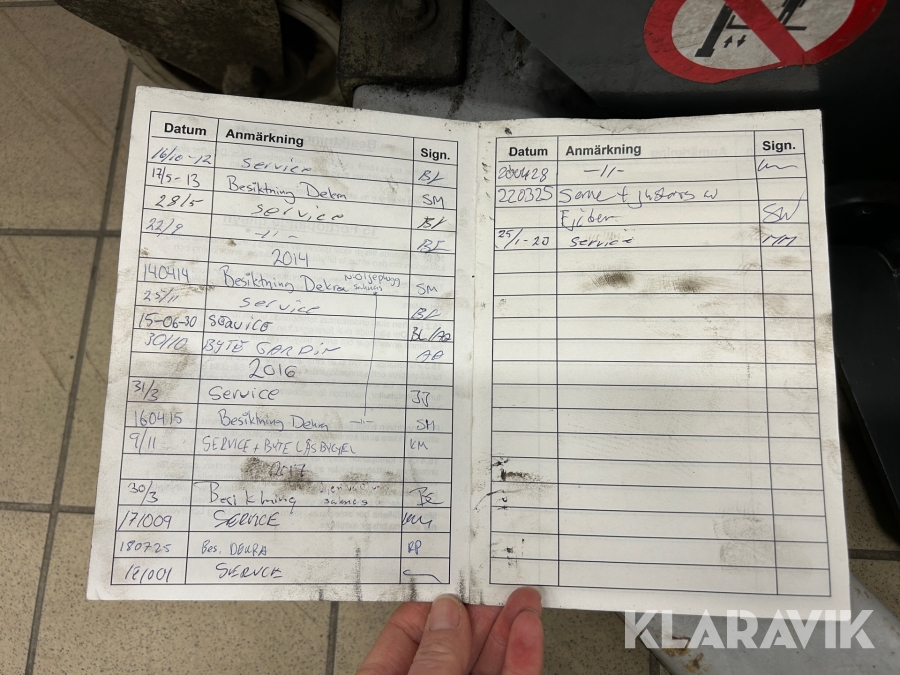 Datum Anmärkning Sign.
16/10-12 Service BL
17/5-13 Besiktning Dekra SM
28/5 Service BL
22/9 -11- BL
2014
140414 Besiktning Dekra SM
25/11 Service BL
15-06-30 Service BL/AA
30/10 BYTE GARDIN AA
2016
31/3 Service JJ
160415 Besiktning Dekra -11- SM
9/11 SERVICE + BYTE LÅSBYGEL KM
2017
30/3 Besiktning saknas
171009 SERVICE
180725 Bes. DEKRA RP
181001 SERVICE
Datum Anmärkning Sign.
200428 -11-
220325 Serve + justeras av
Fjäder SW
25/1-23 service MM
KLARAVIK